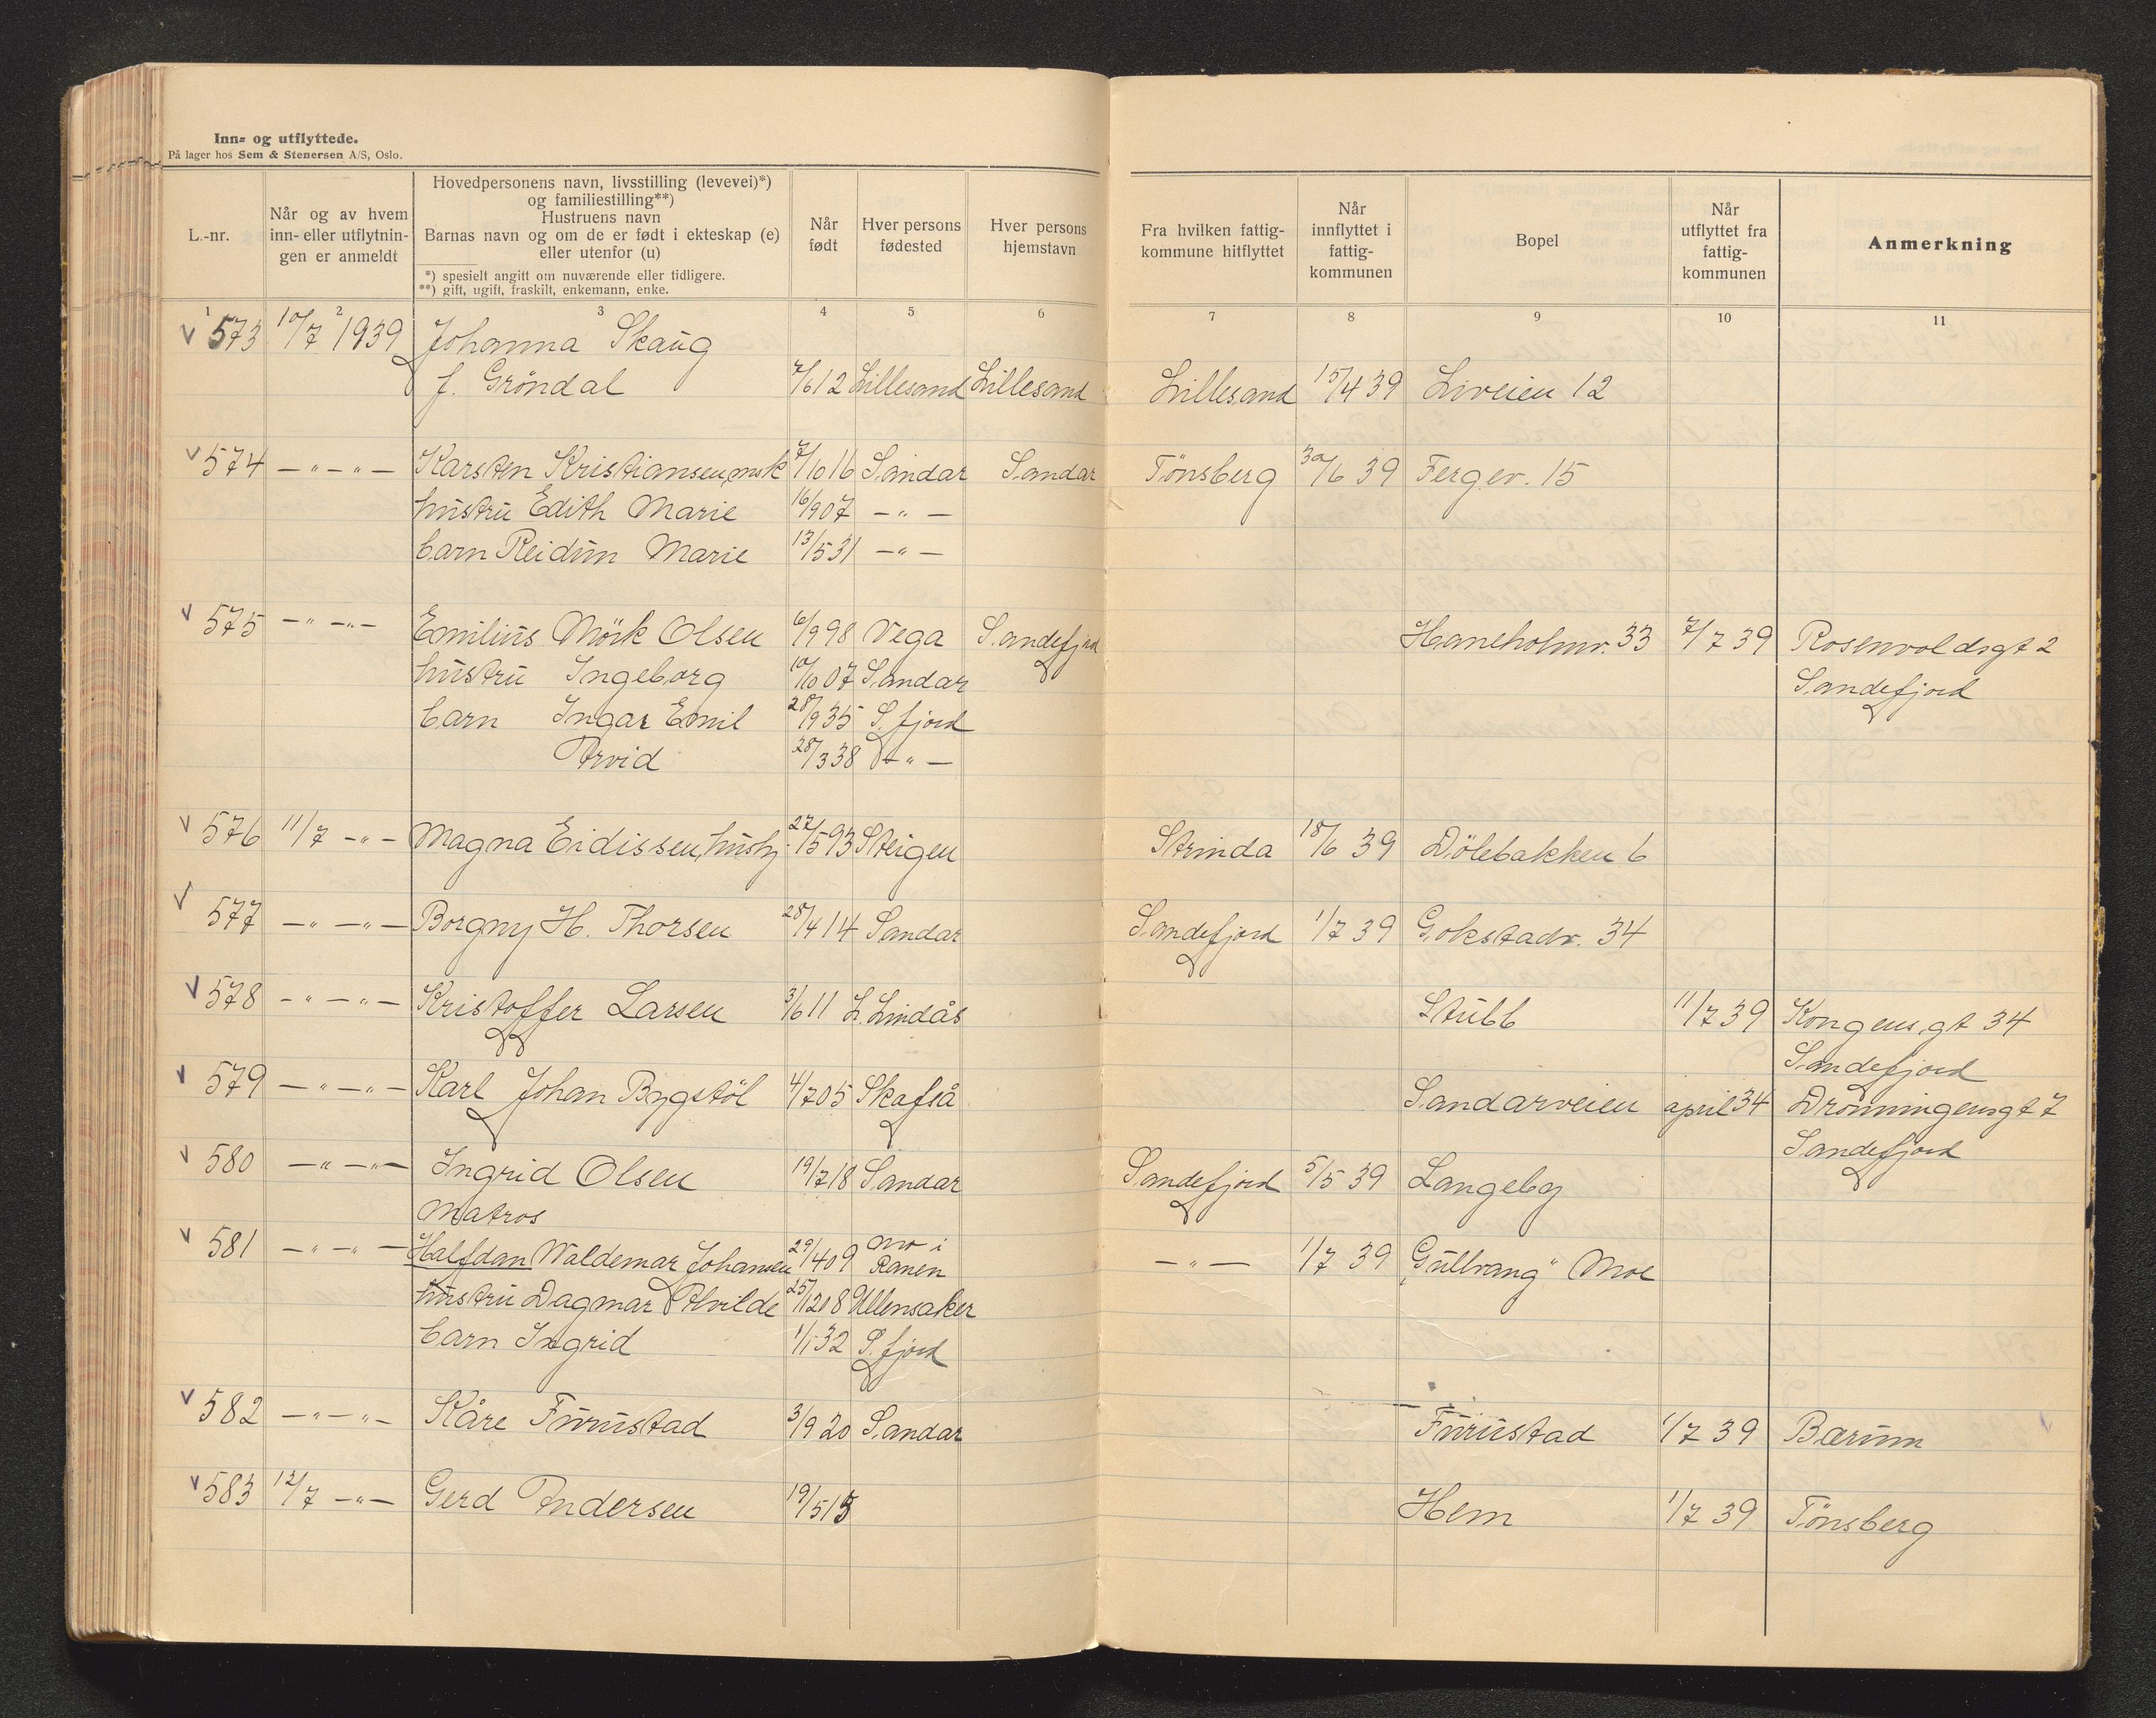 Inn- og utflyttede.
På lager hos Sem & Stenersen A/S, Oslo.
L.-nr.
Når og av hvem inn- eller utflytnin- gen er anmeldt
Hovedpersonens navn, livsstilling (levevei)*)
og familiestilling**)
Hustruens navn
Barnas navn og om de er født i ekteskap (e)
eller utenfor (u)
*) spesielt angitt om nuværende eller tidligere.
**) gift, ugift, fraskilt, enkemann, enke.
Når født
Hver persons fødested
Hver persons hjemstavn
Fra hvilken fattig- kommune hitflyttet
Når innflyttet i fattig- kommunen
Bopel
Når utflyttet fra fattig- kommunen
Anmerkning
1 2 3 4 5 6 7 8 9 10 11
v 573 10/7 1939 Johanna Skaug
f. Gröndal 7/6 12 Lillesand Lillesand Lillesand 15/4 39 Liveien 12
v 574 — " — " — Karsten Kristiansen, mask 7/10 16 Sandar Sandar Tönsberg 30/6 39 Fergev. 15
hustru Edith Marie 16/9 07 — " —
barn Reidun Marie 13/5 31 — " —
v 575 — " — " — Emilius Mörk Olsen 6/9 98 Vega Sandefjord Haneholmv. 33 7/7 39 Rosenvoldsgt 2
hustru Ingeborg 10/10 07 Sandar Sandefjord
barn Ingar Emil 28/9 35 S. fjord
Arvid 28/3 38 — " —
v 576 11/7 — " — Magna Eidissen, hush. 27/5 93 Steigen Strinda 18/6 39 Dölebakken 6
v 577 — " — " — Borgny H. Thorsen 28/4 14 Sandar Sandefjord 1/7 39 Gokstadv. 34
v 578 — " — " — Kristoffer Larsen 3/6 11 L. Lindås Stubb 11/7 39 Kongens gt 34
Sandefjord
v 579 — " — " — Karl Johan Bygstöl 4/7 05 Skafså Sandarveien april 34 Dronningensgt 7
Sandefjord
v 580 — " — " — Ingrid Olsen 19/7 18 Sandar Sandefjord 5/5 39 Langeby
Matros
v 581 — " — " — Halfdan Waldemar Johansen 29/4 09 Mo i Ranen — " — 1/7 39 "Gullvang" Moe
hustru Dagmar Alvilde 25/12 08 Ullensaker
barn Ingrid 1/1 32 S. fjord
v 582 — " — " — Kåre Furustad 3/9 20 Sandar Furustad 1/7 39 Bærum
v 583 12/7 — " — Gerd Andersen 19/5 15 Hem 1/7 39 Tönsberg